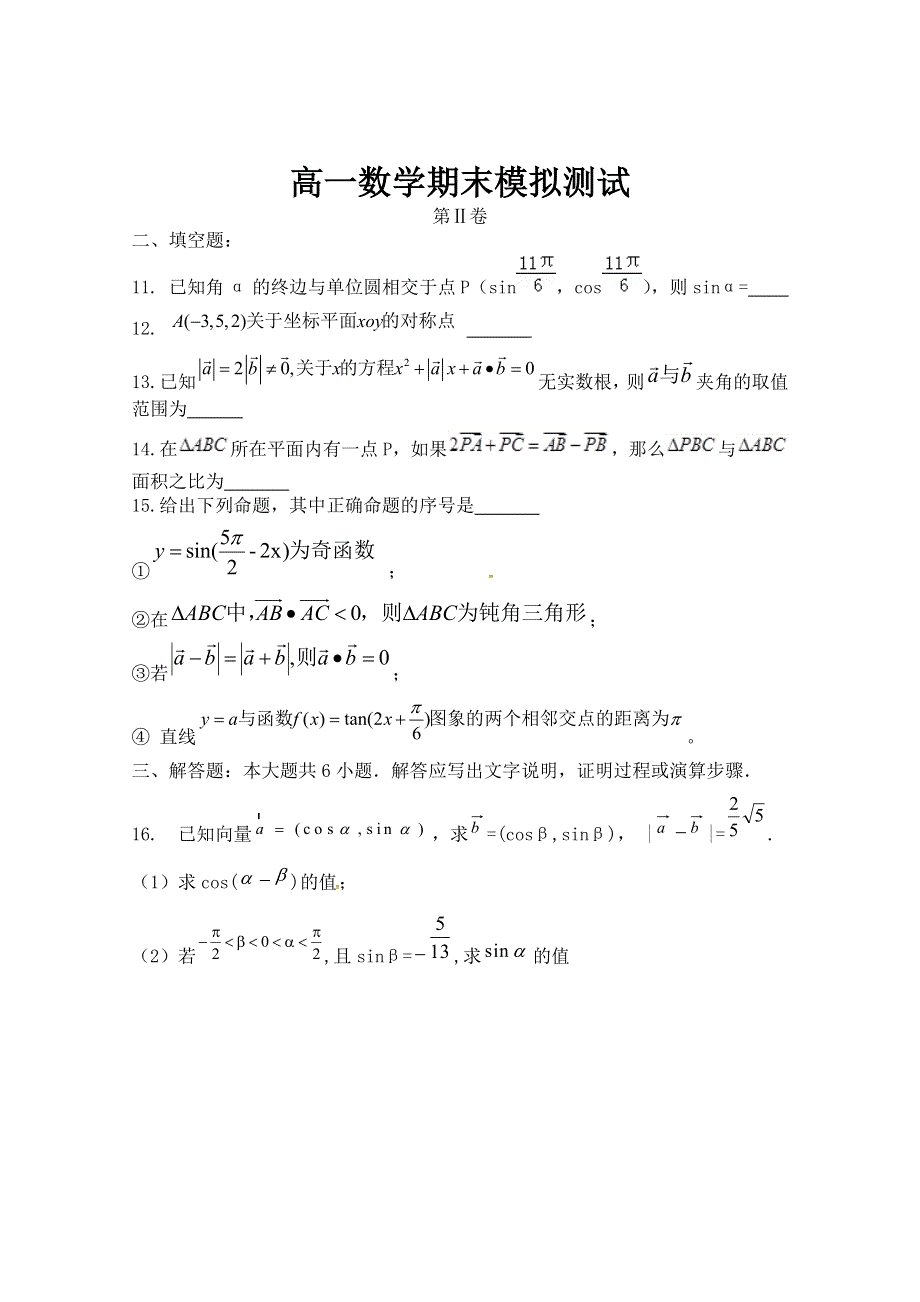 高一数学期末模拟测试
第Ⅱ卷
二、填空题：
11. 已知角 α 的终边与单位圆相交于点 P（sin 11π/6，cos 11π/6），则 sinα=____
12. A(−3,5,2)关于坐标平面xoy的对称点 _______
13.已知|a⃗|=2|b⃗|≠0,关于x的方程x²+|a⃗|x+a⃗•b⃗=0 无实数根，则a⃗与b⃗夹角的取值
范围为______
14.在ΔABC所在平面内有一点 P，如果2PA⃗+PC⃗=AB⃗−PB⃗，那么ΔPBC与ΔABC
面积之比为_______
15.给出下列命题，其中正确命题的序号是_______
① y=sin(5π/2-2x)为奇函数 ；
②在ΔABC中，AB⃗•AC⃗<0，则ΔABC为钝角三角形；
③若|a⃗−b⃗|=|a⃗+b⃗|,则a⃗•b⃗=0；
④ 直线y=a与函数f(x)=tan(2x+π/6)图象的两个相邻交点的距离为π 。
三、解答题：本大题共 6 小题．解答应写出文字说明，证明过程或演算步骤．
16. 已知向量a=(cosα,sinα)，求b⃗=(cosβ,sinβ)， |a⃗−b⃗|=2/5√5．
（1）求 cos(α−β)的值；
（2）若−π/2<β<0<α<π/2,且 sinβ=−5/13,求sinα 的值